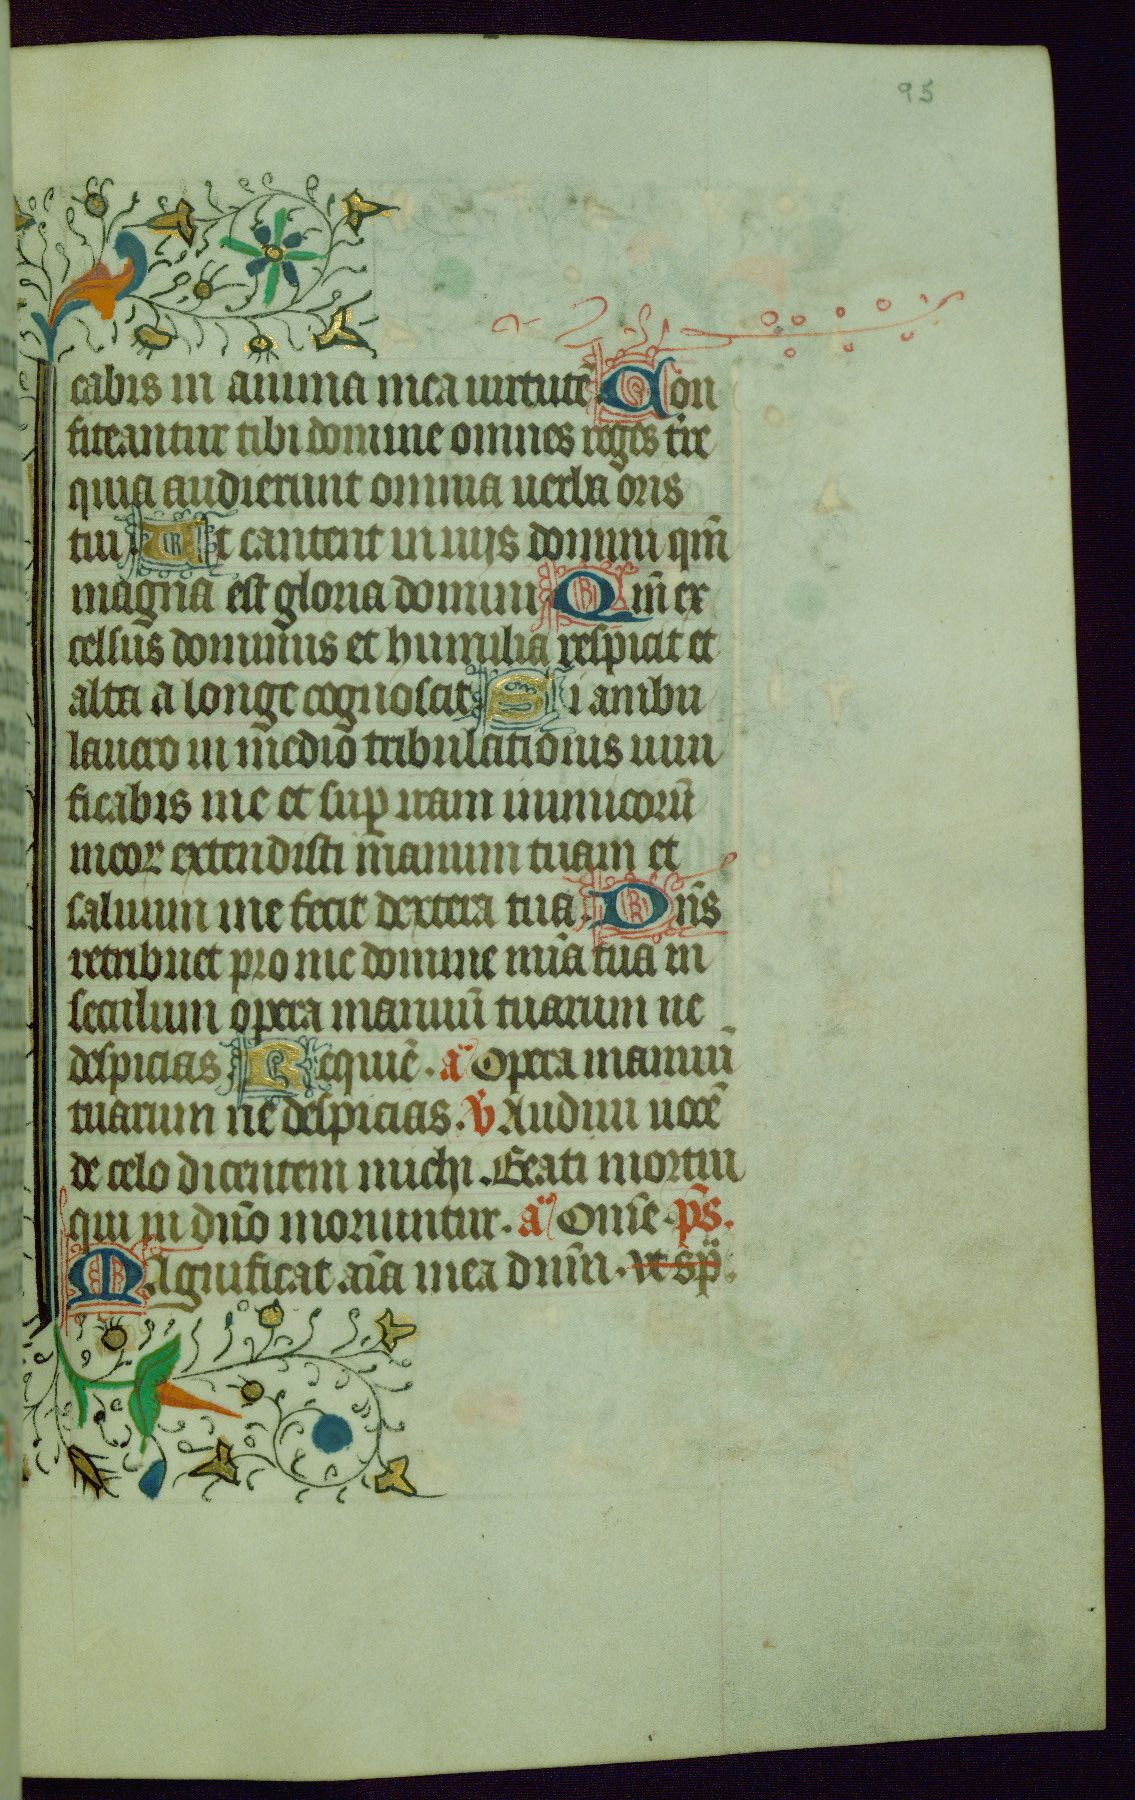 95
cabis in anima mea uirtutē Con
fiteantur tibi domine omnes reges tr̄e
quia audierunt omnia uerba oris
tui Et cantent in uijs domini qm̄
magna est gloria domini Qm̄ ex
celsus dominus et humilia respicit et
alta a longe cognoscit Si ambu
lauero in medio tribulationis uiui
ficabis me et sup iram inimicorū
meor extendisti manum tuam et
saluum me fecit dextera tua Dn̄s
retribuet pro me domine mi̅a tua in
seculum opera manuū tuarum ne
despicias Requiē . a̅ Opera manuū
tuarum ne despicias. v̄ Audiui uocē
de celo dicentem michi . Beati mortui
qui in dn̄o moriuntur. a̅ Om̄e. ps̄.
Magnificat ai̅a mea dnm̄. ut sp̄